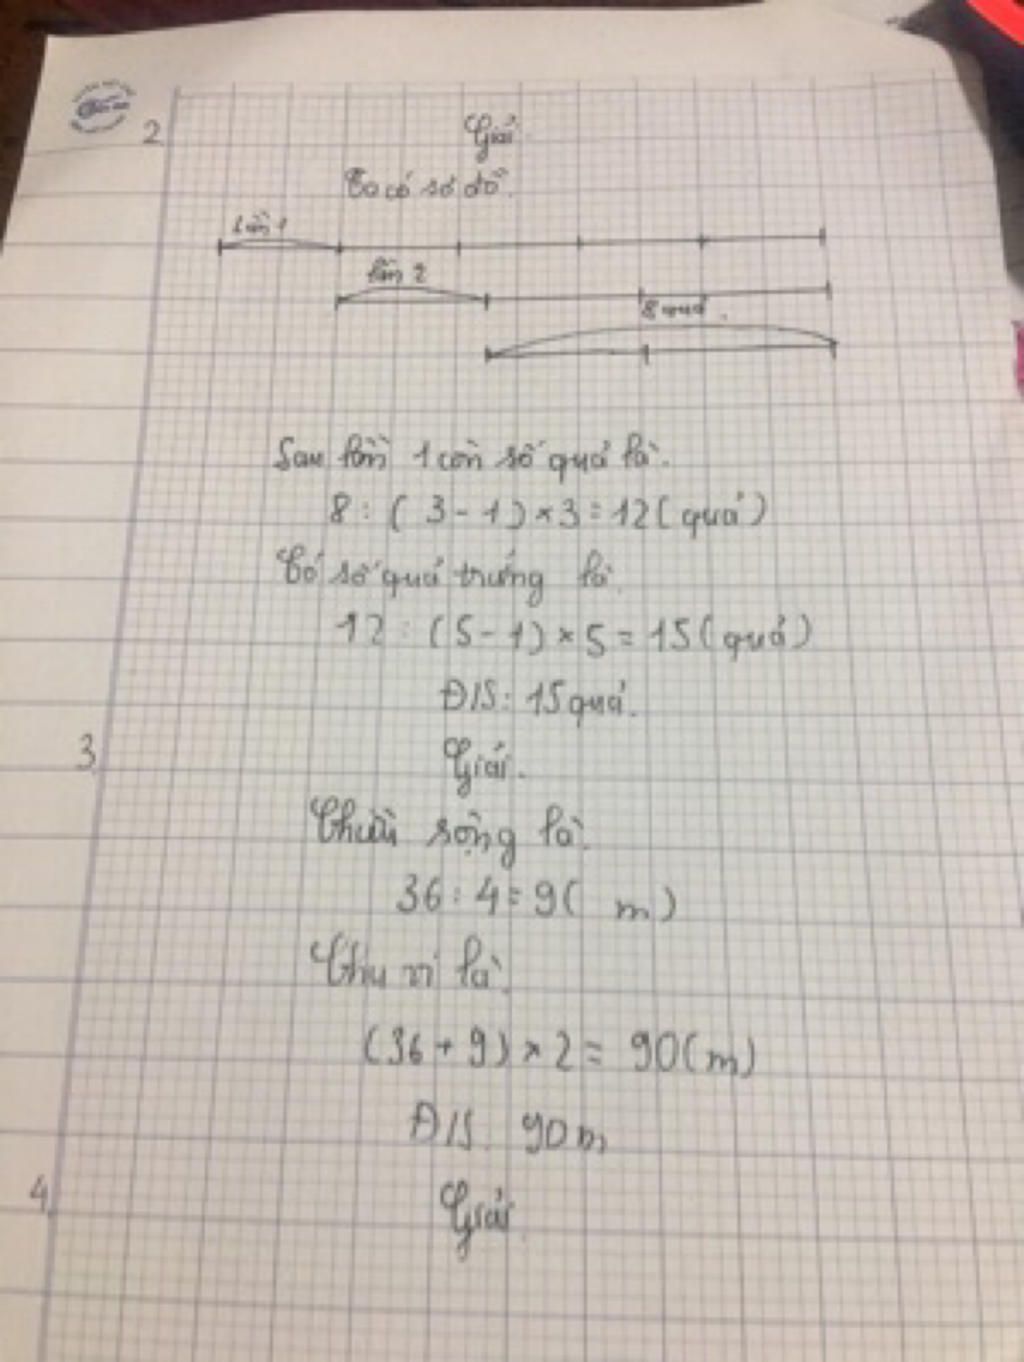 2
Giải.
Ta có sơ đồ.
lần 1
lần 2
8 quả.
Sau lần 1 còn số quả là.
8 : ( 3 - 1 ) × 3 = 12 ( quả )
Có số quả trứng là.
12 : (5 - 1) × 5 = 15 ( quả )
Đ/S: 15 quả.
3
Giải.
Chiều rộng là.
36 : 4 = 9 ( m )
Chu vi là.
(36 + 9) × 2 = 90 (m)
Đ/S. 90 m
4
Giải